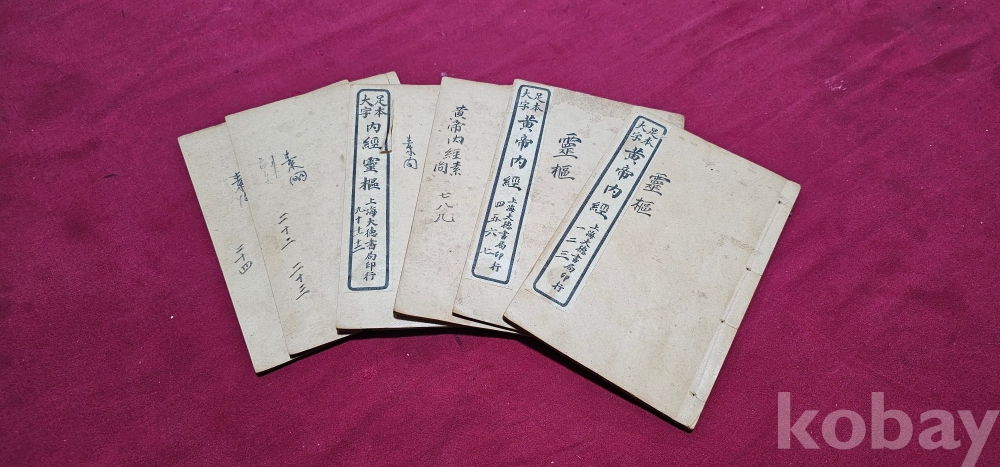 靈樞
足本
大字
黃帝内經
上海大德書局印行
一二三
靈樞
足本
大字
黃帝内經
上海大德書局印行
四五六七
黃帝内經素
问
七八九
素问
足本
大字
内經靈樞
上海大德書局印行
二十二
二十三
二十四
kobay